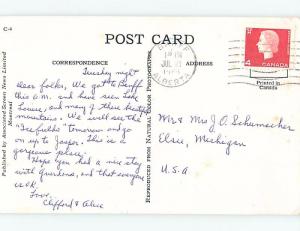 C-4
POST CARD
CORRESPONDENCE
ADDRESS
Tuesday night
Dear folks, We got to Banff
this a.m. and have seen Lake
Louise, and many of these beautiful
mountains. We will see the
"Icefields" tomorrow and go
on up to Jasper. This is a
gorgeous place.
Hope you had a nice stay
with grandma, and that everyone
is O.K.
Love,
Clifford & Alice
Published by Associated Screen News Limited
Montreal
REPRODUCED FROM NATURAL COLOR PHOTOGRAPHS
JUL
ALBERTA
4 CANADA
Printed in
Canada
Mr & Mrs J. O. Schumacker
Elsie, Michigan
U.S.A